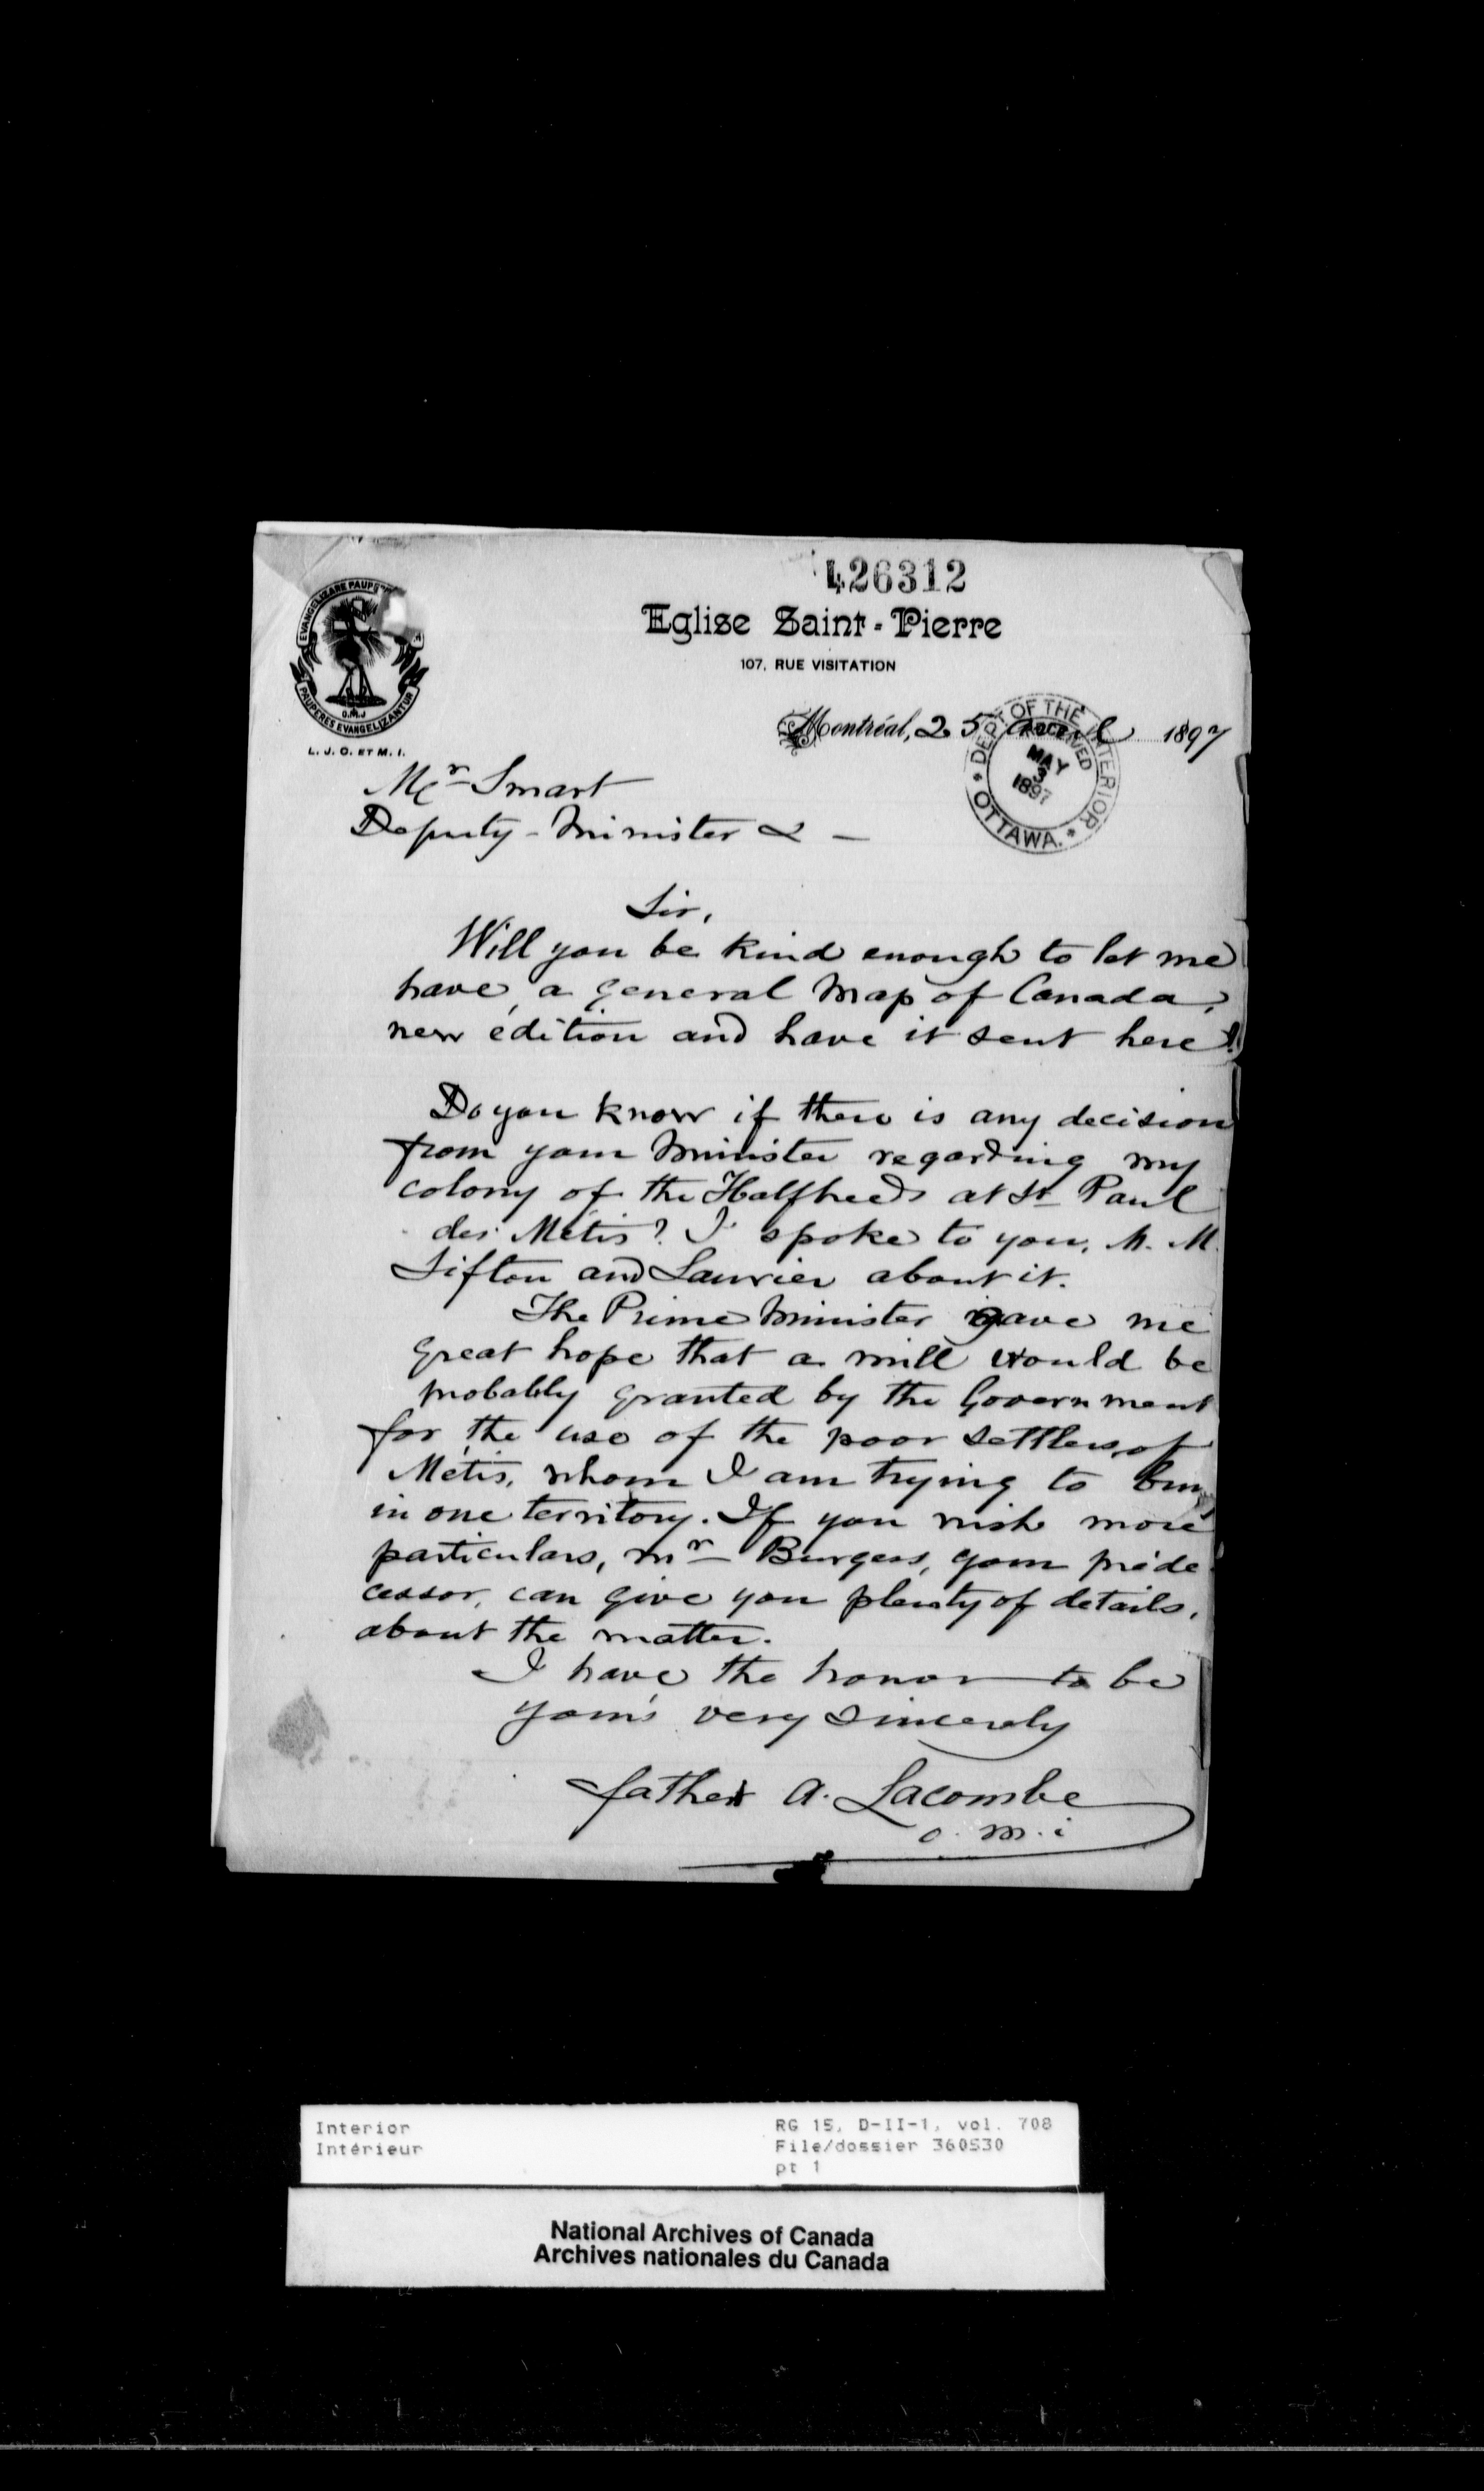 426312
EVANGELIZARE PAUPE
PAUPERES EVANGELIZANTUR
O.M.J
L. J. C. ET M. I.
Eglise Saint-Pierre
107, RUE VISITATION
Montréal, 25 April 1897
DEPT OF THE INTERIOR
RECEIVED
MAY
3
1897
* OTTAWA. *
Mr Smart
Deputy-Minister & —
Sir,
Will you be kind enough to let me
have, a general Map of Canada,
new édition and have it sent here!
Do you know if there is any decision
from your Minister regarding my
colony of the Halfbreeds at St Paul
des Métis? I spoke to you, M. M.
Sifton and Laurier about it.
The Prime Minister gave me
great hope that a mill would be
probably granted by the Government
for the use of the poor settlers, of
Métis, whom I am trying to
in one territory. If you wish more
particulars, Mr Burgess, your préde
cessor, can give you plenty of details,
about the matter.
I have the honor to be
your's very sincerely
father A. Lacombe
o. m. i
Interior
Intérieur
RG 15, D-II-1, vol. 708
File/dossier 360530
pt 1
National Archives of Canada
Archives nationales du Canada